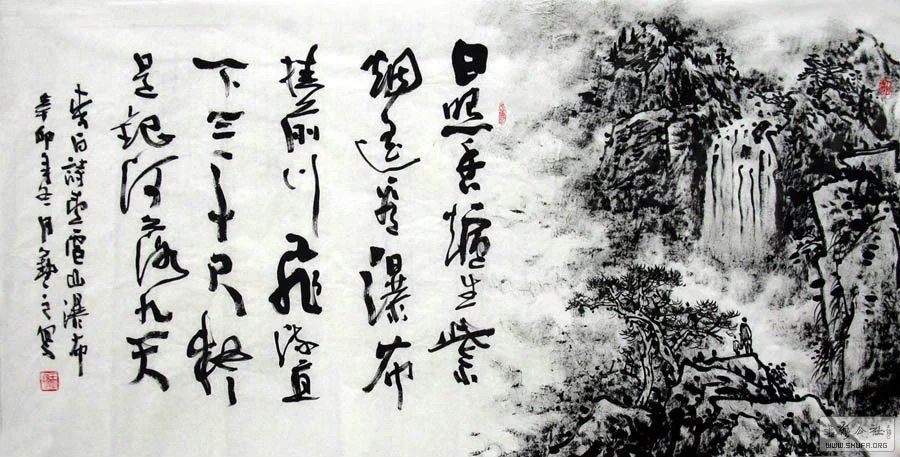 日照香爐生紫
烟遥看瀑布
挂前川飛流直
下三千尺疑
是銀河落九天
李白詩望廬山瀑布
辛卯冬月之寫
WWW.SHUFA.ORG